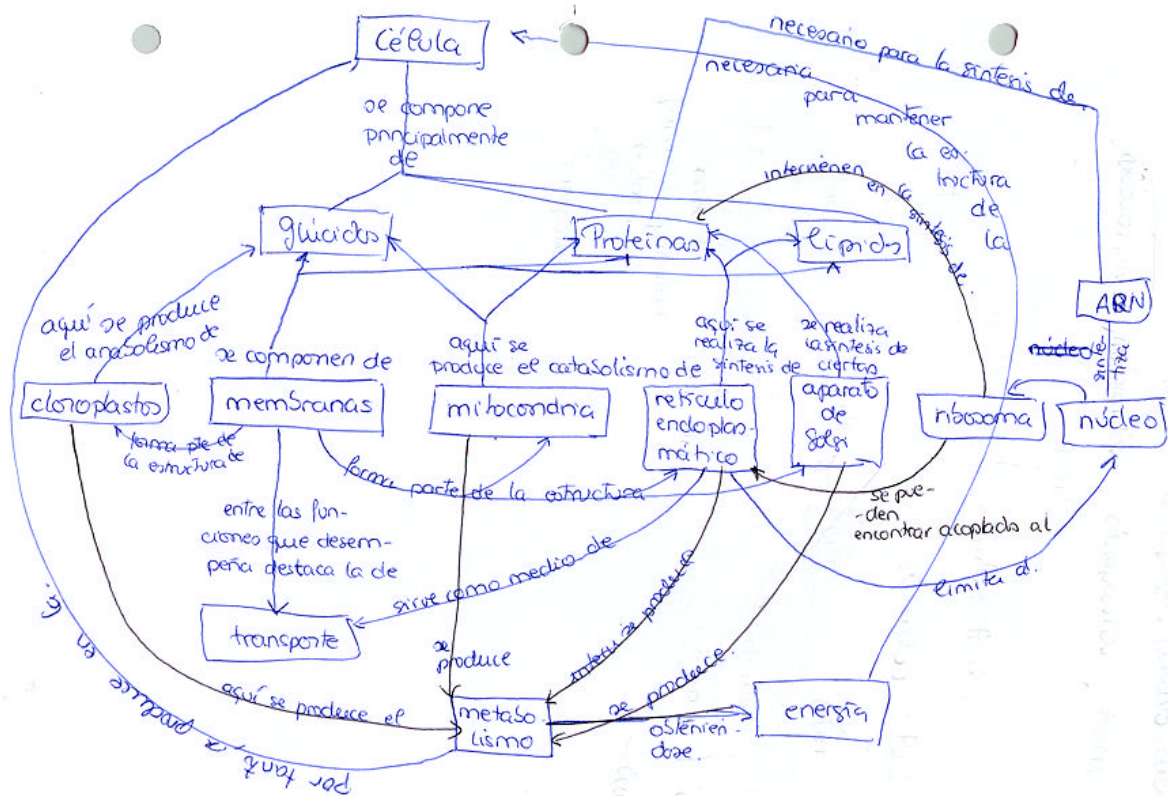 célula
necesario para la síntesis de.
necesaria
para
mantener
la es-
tructura
de
la
se compone
principalmente
de
intervienen
en la síntesis de.
glúcidos
Proteínas
lípidos
ARN
aquí se produce
el anabolismo de
se componen de
aquí se
produce el catabolismo de
aquí se
realiza la
síntesis de
se realiza
la síntesis de
ciertas
núcleo
sinte-
tiza
cloroplastos
membranas
mitocondria
retículo
endoplas-
mático
aparato
de
Golgi
ribosoma
núcleo
forma pte de
la estructura de
forma parte de la estructura
se pue-
-den
encontrar acoplado al
entre las fun-
ciones que desem-
peña destaca la de
sirve como medio de
limita al.
transporte
se
produce
se produce
se produce.
aquí se produce el
metabo-
lismo
obtenien-
dose.
energía
por tanto, se produce en la.